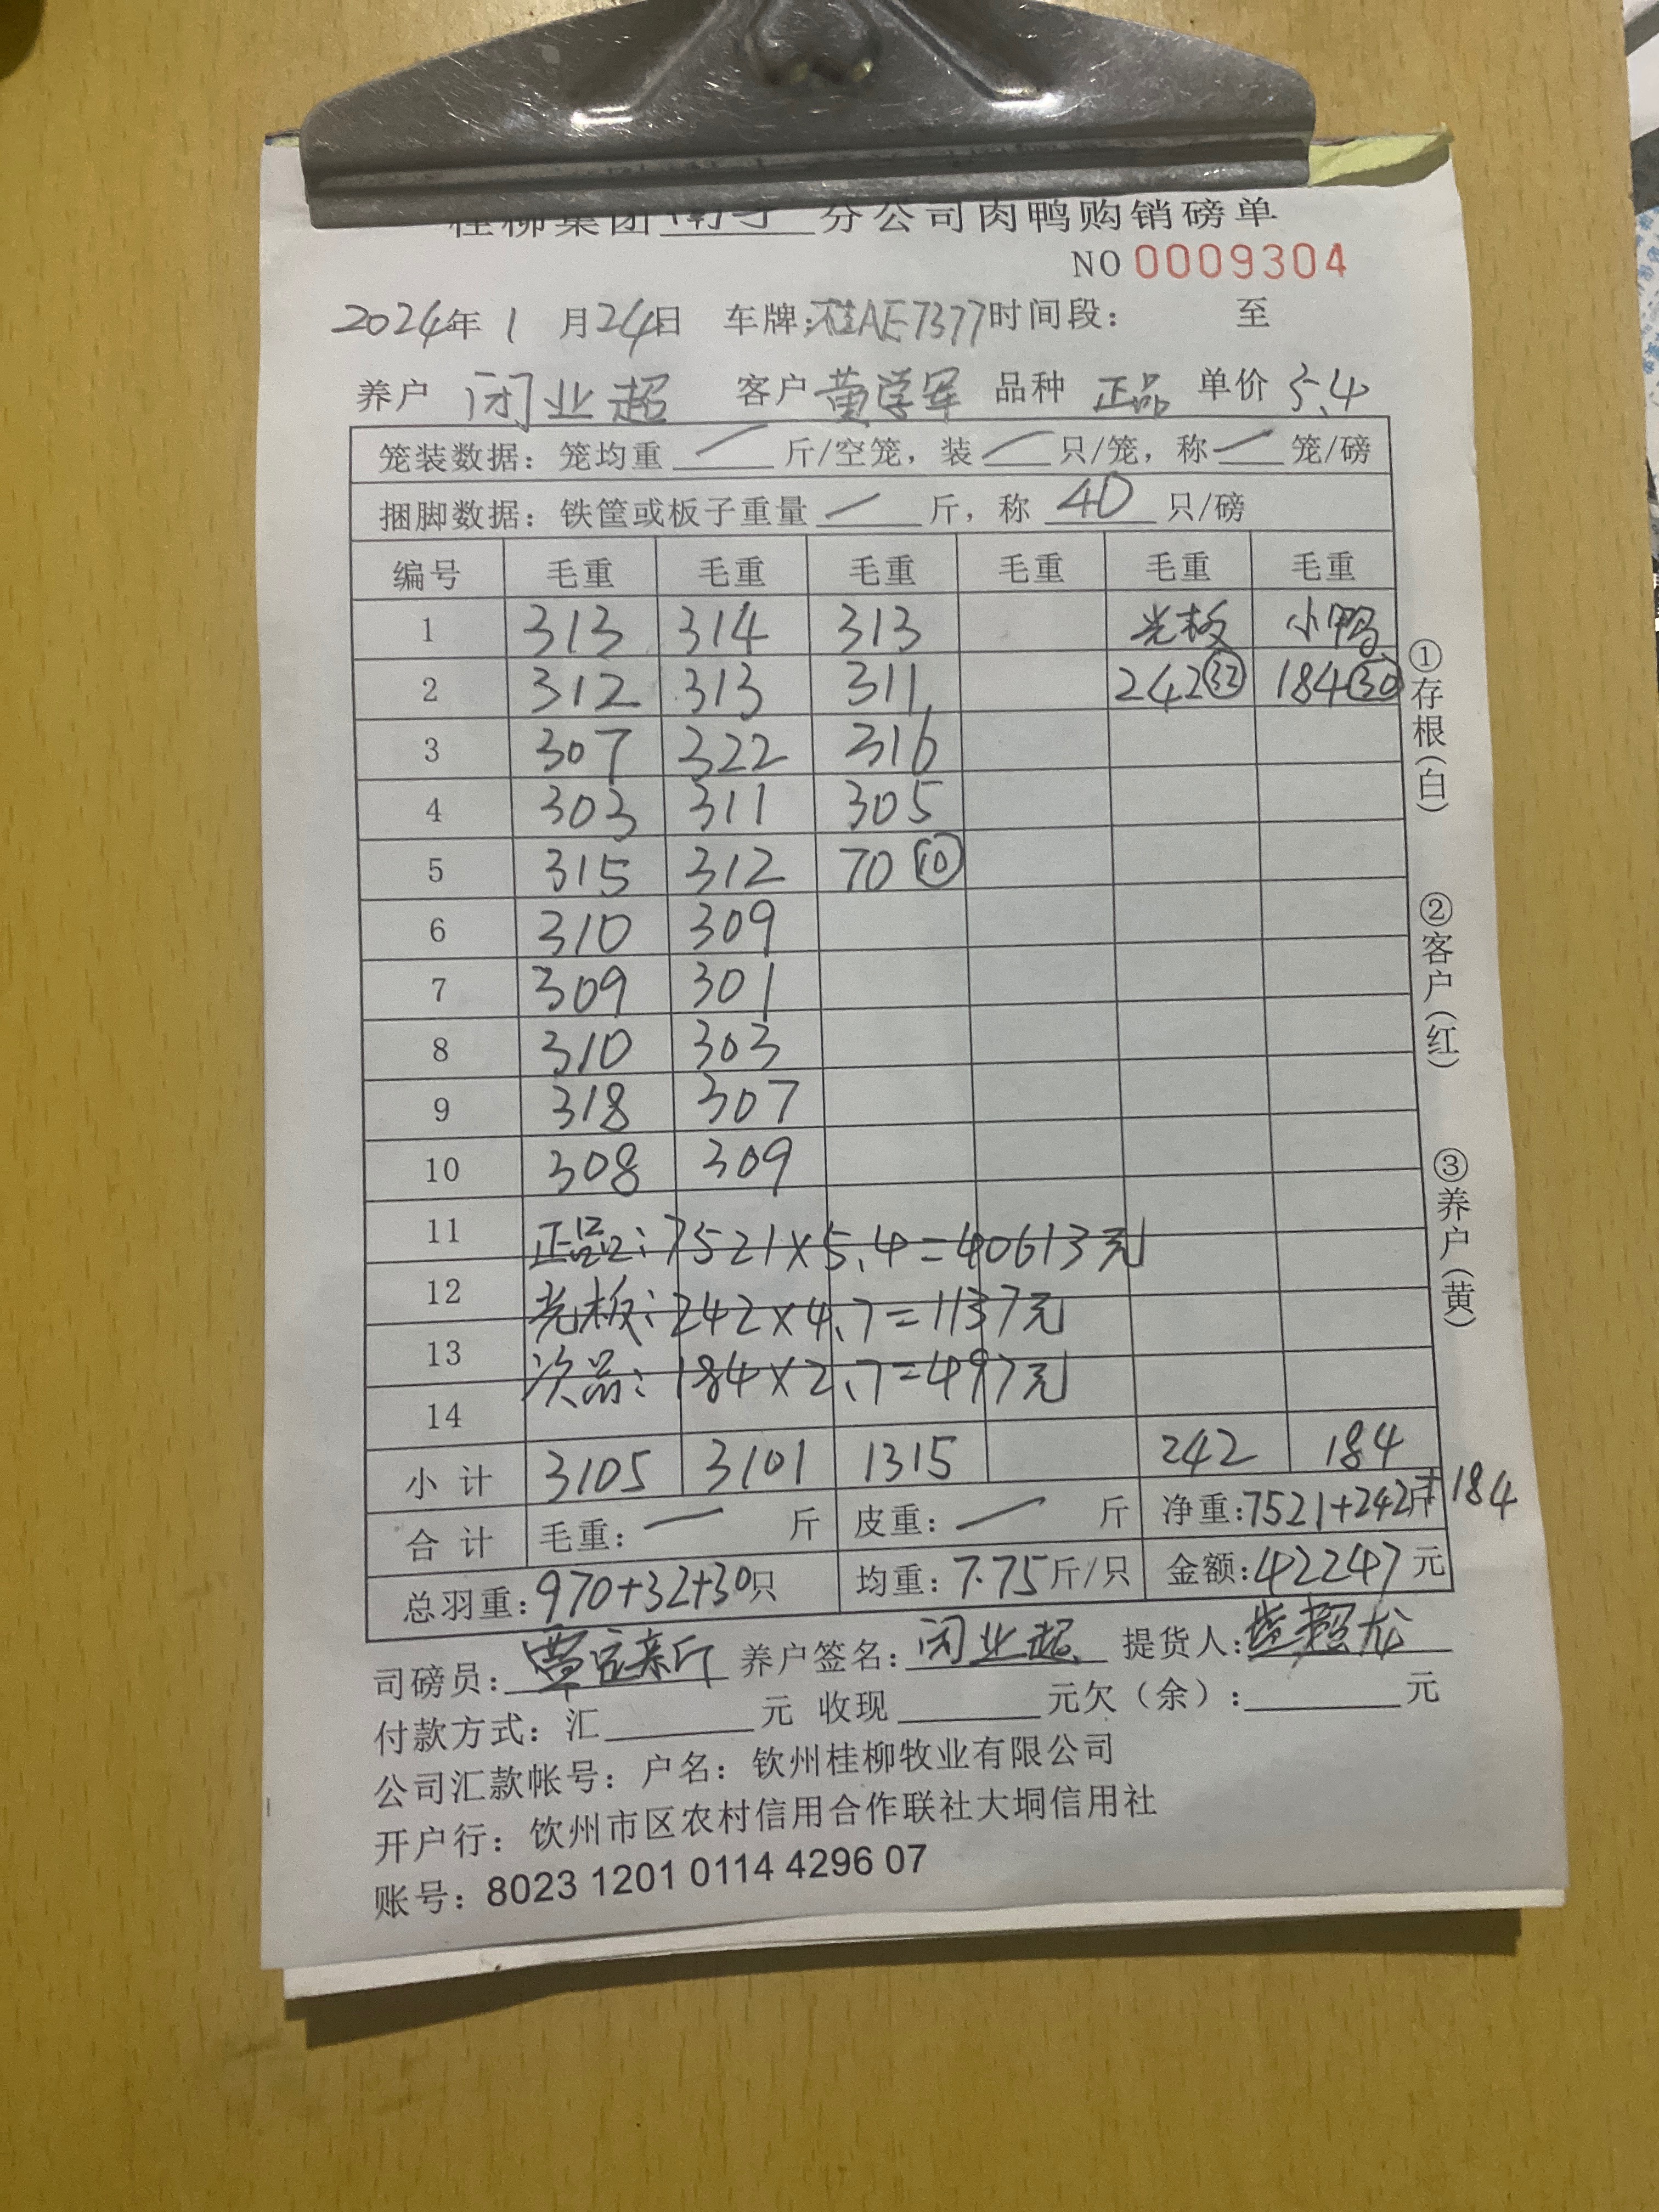 桂柳集团南宁分公司肉鸭购销磅单
NO 0009304
2024年 1 月24日 车牌:桂AE7377时间段: 至
养户 闭业超 客户 黄学军 品种 正品 单价 5.4
笼装数据: 笼均重 — 斤/空笼, 装 — 只/笼, 称 — 笼/磅
捆脚数据: 铁筐或板子重量 — 斤, 称 40 只/磅
编号 毛重 毛重 毛重 毛重 毛重 毛重
1 313 314 313 光板 小鸭
2 312 313 311 242 32 184 30
3 307 322 316
4 303 311 305
5 315 312 70 10
6 310 309
7 309 301
8 310 303
9 318 307
10 308 309
11 正品:7521×5.4=40613元
12 光板:242×4.7=1137元
13 次品:184×2.7=497元
14
小 计 3105 3101 1315 242 184
合 计 毛重: — 斤 皮重: — 斤 净重:7521+242斤+184
总羽重:970+32+30只 均重: 7.75斤/只 金额:42247元
司磅员: 养户签名:闭业超 提货人:
付款方式: 汇 元 收现 元欠(余): 元
公司汇款帐号: 户名: 钦州桂柳牧业有限公司
开户行: 钦州市区农村信用合作联社大垌信用社
账号: 8023 1201 0114 4296 07
①存根(白)
②客户(红)
③养户(黄)